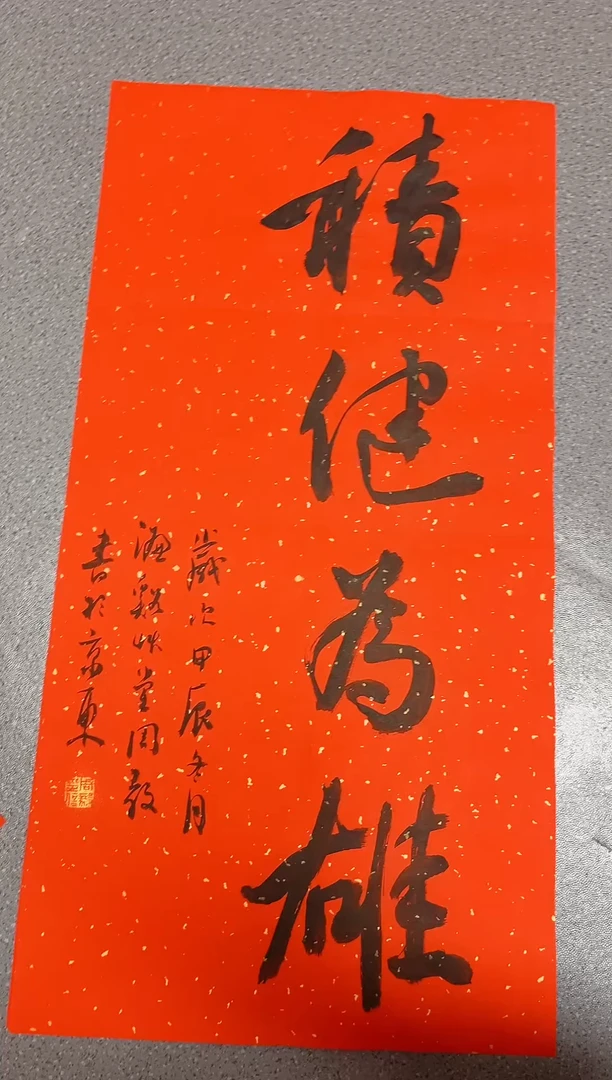 積健為雄
歲次甲辰冬月
濂谿草堂周敦
書於京東